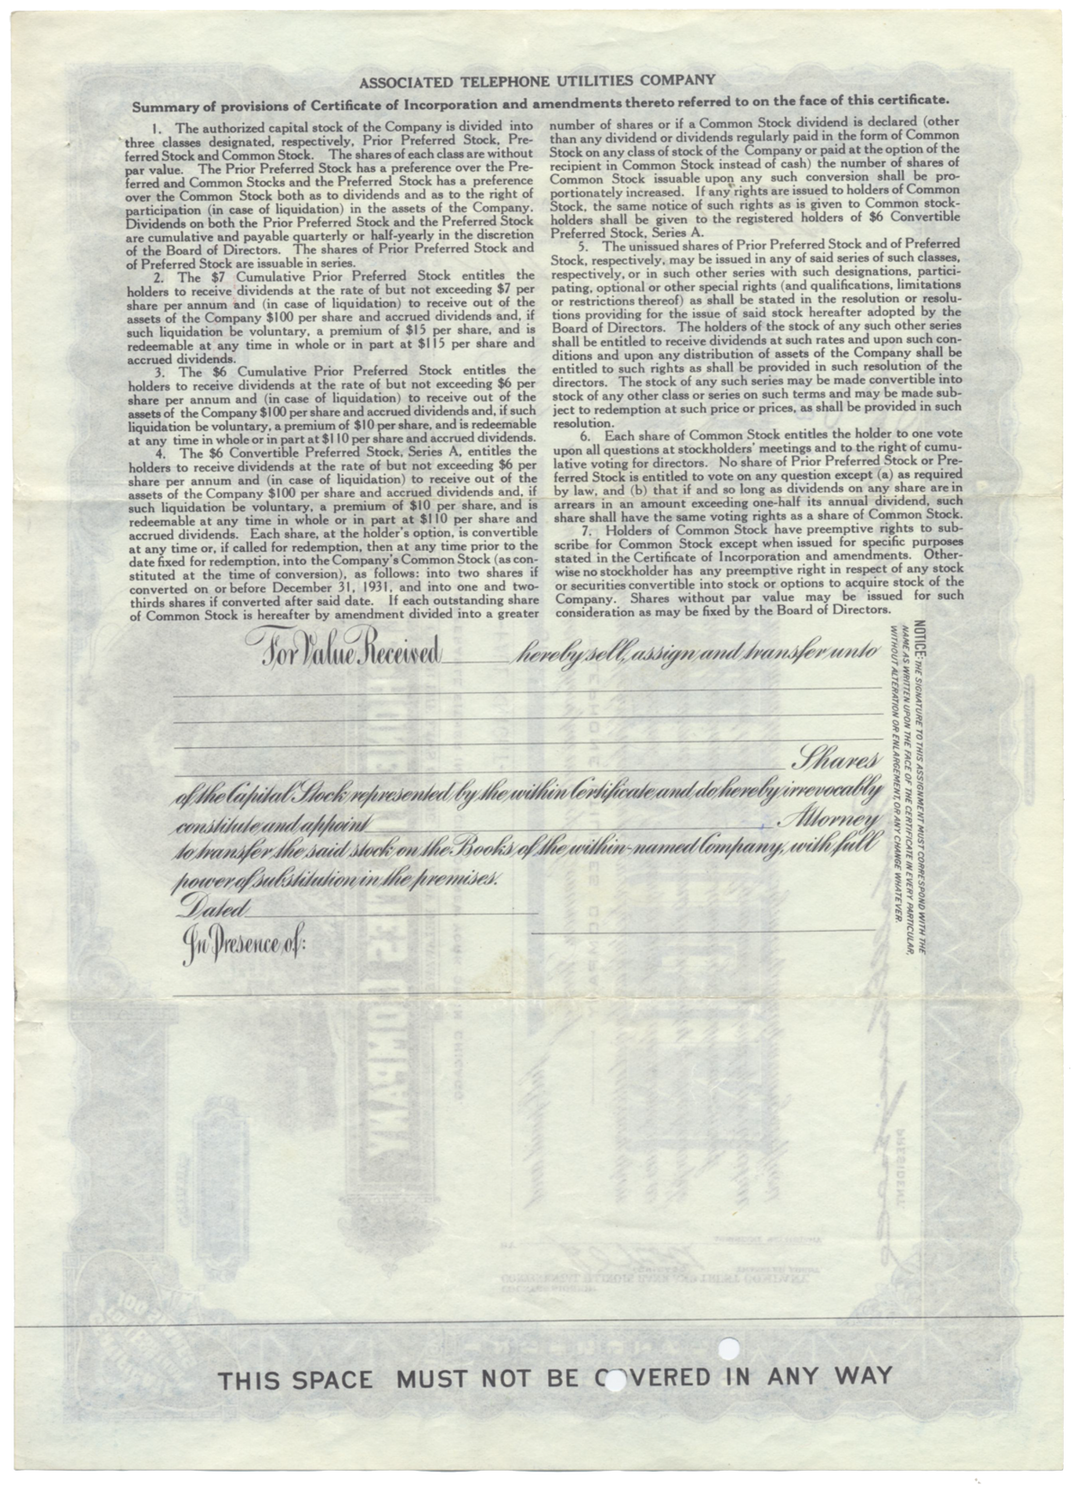 ASSOCIATED TELEPHONE UTILITIES COMPANY
Summary of provisions of Certificate of Incorporation and amendments thereto referred to on the face of this certificate.
1. The authorized capital stock of the Company is divided into
three classes designated, respectively, Prior Preferred Stock, Pre-
ferred Stock and Common Stock. The shares of each class are without
par value. The Prior Preferred Stock has a preference over the Pre-
ferred and Common Stocks and the Preferred Stock has a preference
over the Common Stock both as to dividends and as to the right of
participation (in case of liquidation) in the assets of the Company.
Dividends on both the Prior Preferred Stock and the Preferred Stock
are cumulative and payable quarterly or half-yearly in the discretion
of the Board of Directors. The shares of Prior Preferred Stock and
of Preferred Stock are issuable in series.
2. The $7 Cumulative Prior Preferred Stock entitles the
holders to receive dividends at the rate of but not exceeding $7 per
share per annum and (in case of liquidation) to receive out of the
assets of the Company $100 per share and accrued dividends and, if
such liquidation be voluntary, a premium of $15 per share, and is
redeemable at any time in whole or in part at $115 per share and
accrued dividends.
3. The $6 Cumulative Prior Preferred Stock entitles the
holders to receive dividends at the rate of but not exceeding $6 per
share per annum and (in case of liquidation) to receive out of the
assets of the Company $100 per share and accrued dividends and, if such
liquidation be voluntary, a premium of $10 per share, and is redeemable
at any time in whole or in part at $110 per share and accrued dividends.
4. The $6 Convertible Preferred Stock, Series A, entitles the
holders to receive dividends at the rate of but not exceeding $6 per
share per annum and (in case of liquidation) to receive out of the
assets of the Company $100 per share and accrued dividends and, if
such liquidation be voluntary, a premium of $10 per share, and is
redeemable at any time in whole or in part at $110 per share and
accrued dividends. Each share, at the holder's option, is convertible
at any time or, if called for redemption, then at any time prior to the
date fixed for redemption, into the Company's Common Stock (as con-
stituted at the time of conversion), as follows: into two shares if
converted on or before December 31, 1931, and into one and two-
thirds shares if converted after said date. If each outstanding share
of Common Stock is hereafter by amendment divided into a greater
number of shares or if a Common Stock dividend is declared (other
than any dividend or dividends regularly paid in the form of Common
Stock on any class of stock of the Company or paid at the option of the
recipient in Common Stock instead of cash) the number of shares of
Common Stock issuable upon any such conversion shall be pro-
portionately increased. If any rights are issued to holders of Common
Stock, the same notice of such rights as is given to Common stock-
holders shall be given to the registered holders of $6 Convertible
Preferred Stock, Series A.
5. The unissued shares of Prior Preferred Stock and of Preferred
Stock, respectively, may be issued in any of said series of such classes,
respectively, or in such other series with such designations, partici-
pating, optional or other special rights (and qualifications, limitations
or restrictions thereof) as shall be stated in the resolution or resolu-
tions providing for the issue of said stock hereafter adopted by the
Board of Directors. The holders of the stock of any such other series
shall be entitled to receive dividends at such rates and upon such con-
ditions and upon any distribution of assets of the Company shall be
entitled to such rights as shall be provided in such resolution of the
directors. The stock of any such series may be made convertible into
stock of any other class or series on such terms and may be made sub-
ject to redemption at such price or prices, as shall be provided in such
resolution.
6. Each share of Common Stock entitles the holder to one vote
upon all questions at stockholders' meetings and to the right of cumu-
lative voting for directors. No share of Prior Preferred Stock or Pre-
ferred Stock is entitled to vote on any question except (a) as required
by law, and (b) that if and so long as dividends on any share are in
arrears in an amount exceeding one-half its annual dividend, such
share shall have the same voting rights as a share of Common Stock.
7. Holders of Common Stock have preemptive rights to sub-
scribe for Common Stock except when issued for specific purposes
stated in the Certificate of Incorporation and amendments. Other-
wise no stockholder has any preemptive right in respect of any stock
or securities convertible into stock or options to acquire stock of the
Company. Shares without par value may be issued for such
consideration as may be fixed by the Board of Directors.
For Value Received hereby sell, assign and transfer unto
Shares
of the Capital Stock represented by the within Certificate and do hereby irrevocably
constitute and appoint Attorney
to transfer the said stock on the Books of the within-named Company, with full
power of substitution in the premises.
Dated
In Presence of:
NOTICE: THE SIGNATURE TO THIS ASSIGNMENT MUST CORRESPOND WITH THE
NAME AS WRITTEN UPON THE FACE OF THE CERTIFICATE IN EVERY PARTICULAR,
WITHOUT ALTERATION OR ENLARGEMENT, OR ANY CHANGE WHATEVER.
THIS SPACE MUST NOT BE COVERED IN ANY WAY